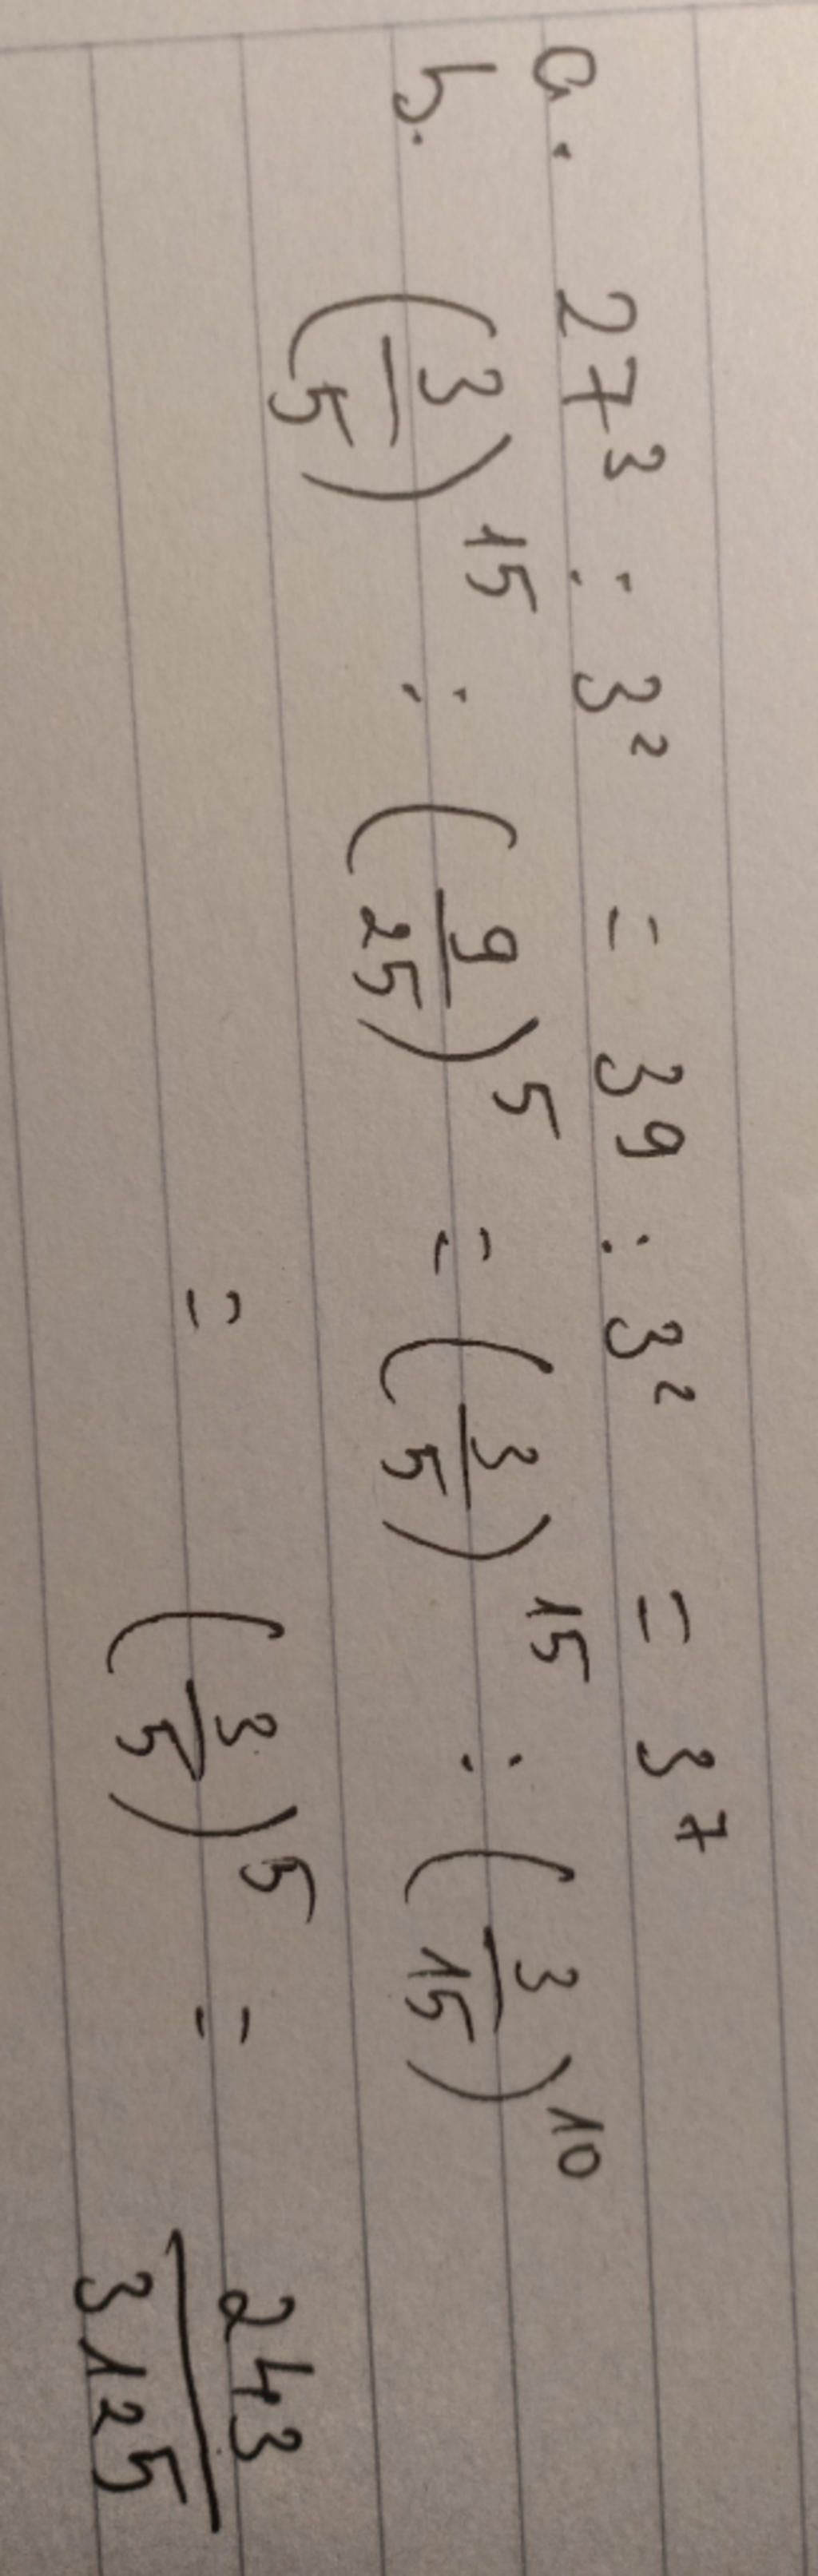 a. 27³ : 3² = 3⁹ : 3² = 3⁷
b. (3/5)¹⁵ : (9/25)⁵ = (3/5)¹⁵ : (3/15)¹⁰
= (3/5)⁵ = 243/3125